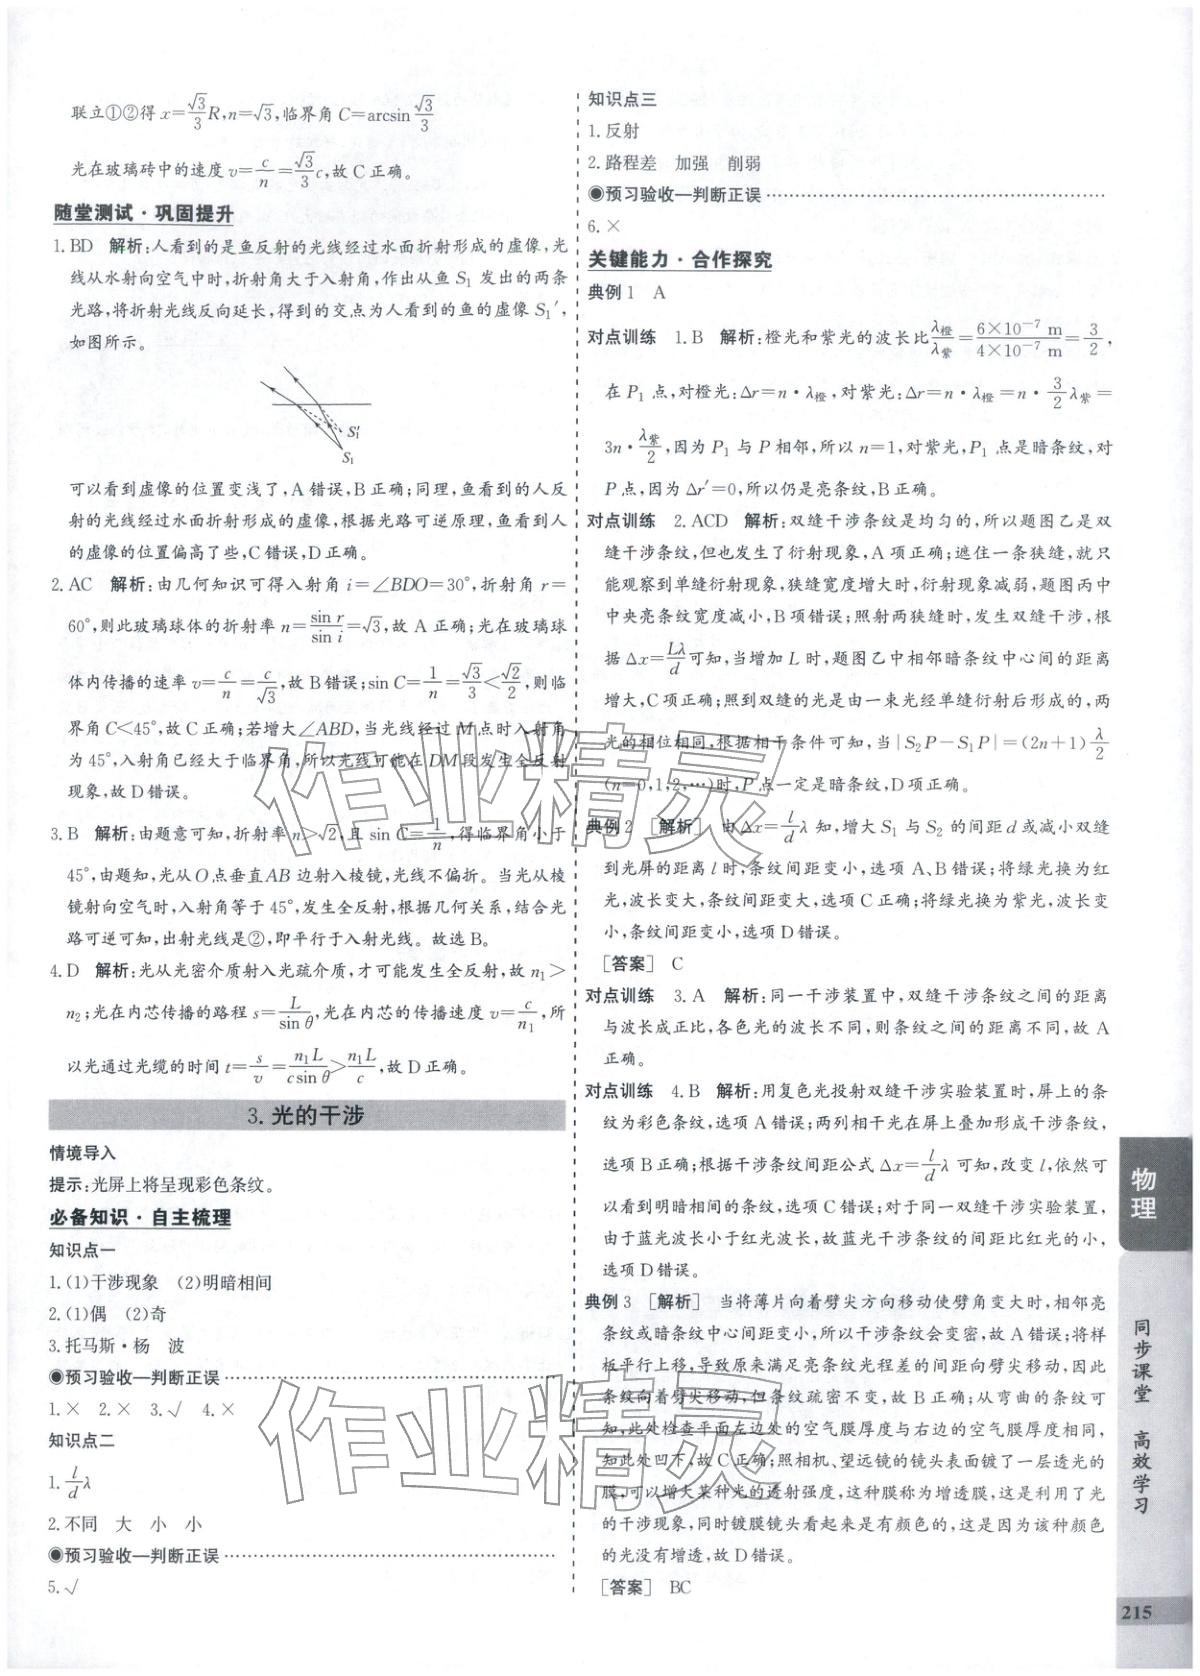 联立①②得 x=√3/3 R,n=√3,临界角 C=arcsin √3/3
光在玻璃砖中的速度 v=c/n=√3/3 c,故 C 正确。
随堂测试·巩固提升
1. BD　解析:人看到的是鱼反射的光线经过水面折射形成的虚像,光
线从水射向空气中时,折射角大于入射角,作出从鱼 S₁ 发出的两条
光路,将折射光线反向延长,得到的交点为人看到的鱼的虚像 S₁′,
如图所示。
S₁′
S₁
可以看到虚像的位置变浅了,A 错误,B 正确;同理,鱼看到的人反
射的光线经过水面折射形成的虚像,根据光路可逆原理,鱼看到人
的虚像的位置偏高了些,C 错误,D 正确。
2. AC　解析:由几何知识可得入射角 i=∠BDO=30°,折射角 r=
60°,则此玻璃球体的折射率 n=sin r/sin i=√3,故 A 正确;光在玻璃球
体内传播的速率 v=c/n=c/√3,故 B 错误;sin C=1/n=√3/3<√2/2,则临
界角 C<45°,故 C 正确;若增大∠ABD,当光线经过 M 点时入射角
为 45°,入射角已经大于临界角,所以光线可能在 DM 段发生全反射
现象,故 D 错误。
3. B　解析:由题意可知,折射率 n>√2,且 sin C=1/n,得临界角小于
45°,由题知,光从 O 点垂直 AB 边射入棱镜,光线不偏折。当光从棱
镜射向空气时,入射角等于 45°,发生全反射,根据几何关系,结合光
路可逆可知,出射光线是②,即平行于入射光线。故选 B。
4. D　解析:光从光密介质射入光疏介质,才可能发生全反射,故 n₁>
n₂;光在内芯传播的路程 s=L/sin θ,光在内芯的传播速度 v=c/n₁,所
以光通过光缆的时间 t=s/v=n₁L/(c sin θ)>n₁L/c,故 D 正确。
3. 光的干涉
情境导入
提示:光屏上将呈现彩色条纹。
必备知识·自主梳理
知识点一
1.(1)干涉现象　(2)明暗相间
2.(1)偶　(2)奇
3.托马斯·杨　波
◉预习验收—判断正误
1.×　2.×　3.√　4.×
知识点二
1. l/d λ
2.不同　大　小　小
◉预习验收—判断正误
5.√
知识点三
1.反射
2.路程差　加强　削弱
◉预习验收—判断正误
6.×
关键能力·合作探究
典例 1　A
对点训练　1. B　解析:橙光和紫光的波长比 λ橙/λ紫=6×10⁻⁷ m/4×10⁻⁷ m=3/2,
在 P₁ 点,对橙光:Δr=n·λ橙,对紫光:Δr=n·λ橙=n·3/2 λ紫=
3n·λ紫/2,因为 P₁ 与 P 相邻,所以 n=1,对紫光,P₁ 点是暗条纹,对
P 点,因为 Δr′=0,所以仍是亮条纹,B 正确。
对点训练　2. ACD　解析:双缝干涉条纹是均匀的,所以题图乙是双
缝干涉条纹,但也发生了衍射现象,A 项正确;遮住一条狭缝,就只
能观察到单缝衍射现象,狭缝宽度增大时,衍射现象减弱,题图丙中
中央亮条纹宽度减小,B 项错误;照射两狭缝时,发生双缝干涉,根
据 Δx=Lλ/d 可知,当增加 L 时,题图乙中相邻暗条纹中心间的距离
增大,C 项正确;照到双缝的光是由一束光经单缝衍射后形成的,两
光的相位相同,根据相干条件可知,当|S₂P−S₁P|=(2n+1) λ/2
(n=0,1,2,…)时,P 点一定是暗条纹,D 项正确。
典例 2　[解析]　由 Δx=l/d λ 知,增大 S₁ 与 S₂ 的间距 d 或减小双缝
到光屏的距离 l 时,条纹间距变小,选项 A、B 错误;将绿光换为红
光,波长变大,条纹间距变大,选项 C 正确;将绿光换为紫光,波长变
小,条纹间距变小,选项 D 错误。
[答案]　C
对点训练　3. A　解析:同一干涉装置中,双缝干涉条纹之间的距离
与波长成正比,各色光的波长不同,则条纹之间的距离不同,故 A
正确。
对点训练　4. B　解析:用复色光投射双缝干涉实验装置时,屏上的条
纹为彩色条纹,选项 A 错误;两列相干光在屏上叠加形成干涉条纹,
选项 B 正确;根据干涉条纹间距公式 Δx=l/d λ 可知,改变 l,依然可
以看到明暗相间的条纹,选项 C 错误;对于同一双缝干涉实验装置,
由于蓝光波长小于红光波长,故蓝光干涉条纹的间距比红光的小,
选项 D 错误。
典例 3　[解析]　当将薄片向着劈尖方向移动使劈角变大时,相邻亮
条纹或暗条纹中心间距变小,所以干涉条纹会变密,故 A 错误;将样
板平行上移,导致原来满足亮条纹光程差的间距向劈尖移动,因此
条纹向着劈尖移动,但条纹疏密不变,故 B 正确;从弯曲的条纹可
知,此处检查平面左边处的空气膜厚度与右边的空气膜厚度相同,
知此处凹下,故 C 正确;照相机、望远镜的镜头表面镀了一层透光的
膜,可以增大某种光的透射强度,这种膜称为增透膜,这是利用了光
的干涉现象,同时镀膜镜头看起来是有颜色的,这是因为该种颜色
的光没有增透,故 D 错误。
[答案]　BC
物理
同步课堂　高效学习
215
作业精灵
作业精灵